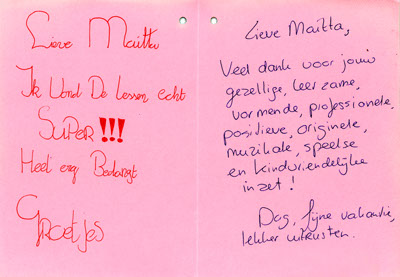 Lieve Maitta
Ik Vond De Lessen echt
SUPER!!!
Heel erg Bedankt
Groetjes
Lieve Maitta,
Veel dank voor jouw
gezellige, leerzame,
vormende, professionele,
positieve, originele,
muzikale, speelse
en kindvriendelijke
inzet!
Dag, fijne vakantie,
lekker uitrusten.